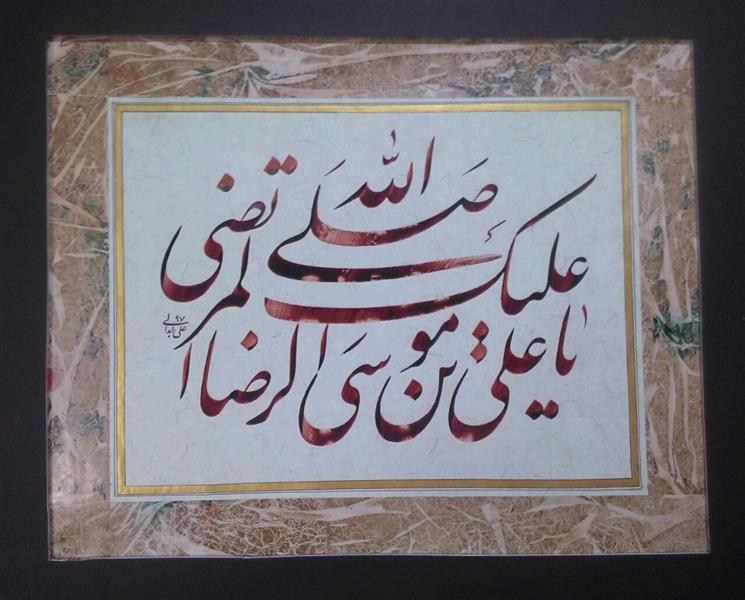 صلی الله
علیک
یا علی بن موسی الرضا المرتضی
علی ابدالی
۹۷